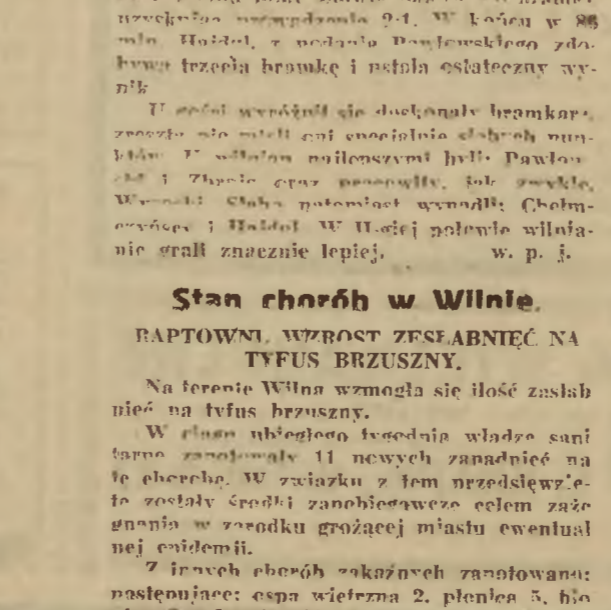 uzyskując prowadzenie 2:1. W końcu w 86
min. Hajdul, z podania Pawłowskiego zdo-
bywa trzecią bramkę i ustala ostateczny wy-
nik
U gości wyróżnił się doskonały bramkarz,
zresztą nie mieli oni specjalnie słabych pun-
któw. U wilnian najlepszymi byli: Pawłow
ski i Zbycie oraz pracowity, jak zwykle,
Słabo natomiast wypadli: Chełm-
czyńscy i Hajdul. W II-giej połowie wilnia-
nie grali znacznie lepiej. w. p. j.
Stan chorób w Wilnie.
RAPTOWNY WZROST ZESŁABNIĘĆ NA
TYFUS BRZUSZNY.
Na terenie Wilna wzmogła się ilość zasłab
nięć na tyfus brzuszny.
W ciągu ubiegłego tygodnia władze sani
tarne zanotowały 11 nowych zapadnięć na
tę chorobę. W związku z tem przedsięwzię-
te zostały środki zapobiegawcze celem zaże
gnania w zarodku grożącej miastu ewentual
nej epidemii.
Z innych chorób zakaźnych zanotowano:
następujące: ospa wietrzna 2, płonica 5, bło